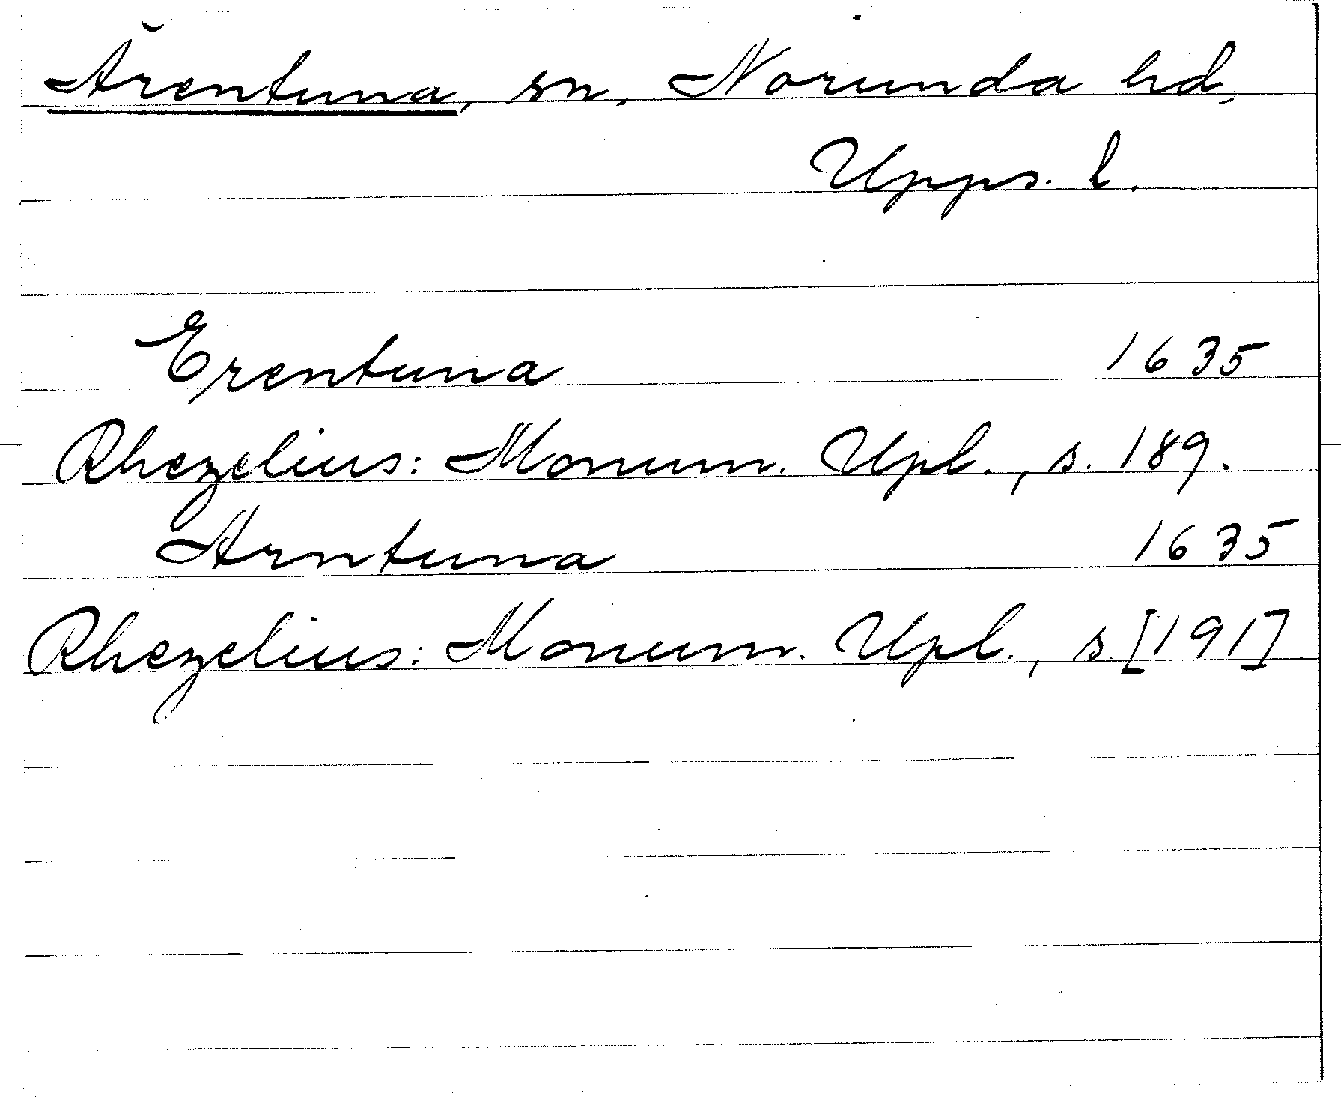 Ärentuna, sn, Norunda hd,
Upps. l.
Erentuna 1635
Rhezelius: Monum. Upl., s. 189.
Arntuna 1635
Rhezelius: Monum. Upl., s. [191]